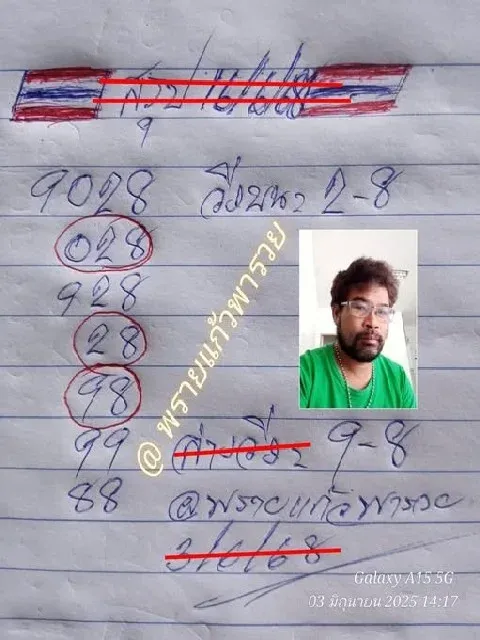 สรุป 16/6/68
9
9028 วิ่งบน 2-8
028
928
28
98
99 ล่างวิ่ง 9-8
88 @พรายแก้วพารวย
3/6/68
@ พรายแก้วพารวย
Galaxy A15 5G
03 มิถุนายน 2025 14:17